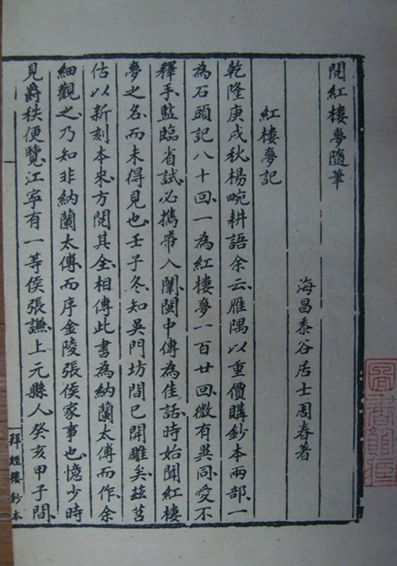 閱紅樓夢隨筆
海昌黍谷居士周春著
紅樓夢記
乾隆庚戌秋楊畹耕語余云雁隅以重價購鈔本兩部一
為石頭記八十回一為紅樓夢一百廿回微有異同愛不
釋手監臨省試必攜帶入闈閩中傳為佳話時始聞紅樓
夢之名而未得見也壬子冬知吳門坊間已開雕矣茲苕
估以新刻本來方閱其全相傳此書為納蘭太傅而作余
細觀之乃知非納蘭太傅而序金陵張侯家事也憶少時
見爵秩便覽江寧有一等侯張謙上元縣人癸亥甲子間
拜經樓鈔本